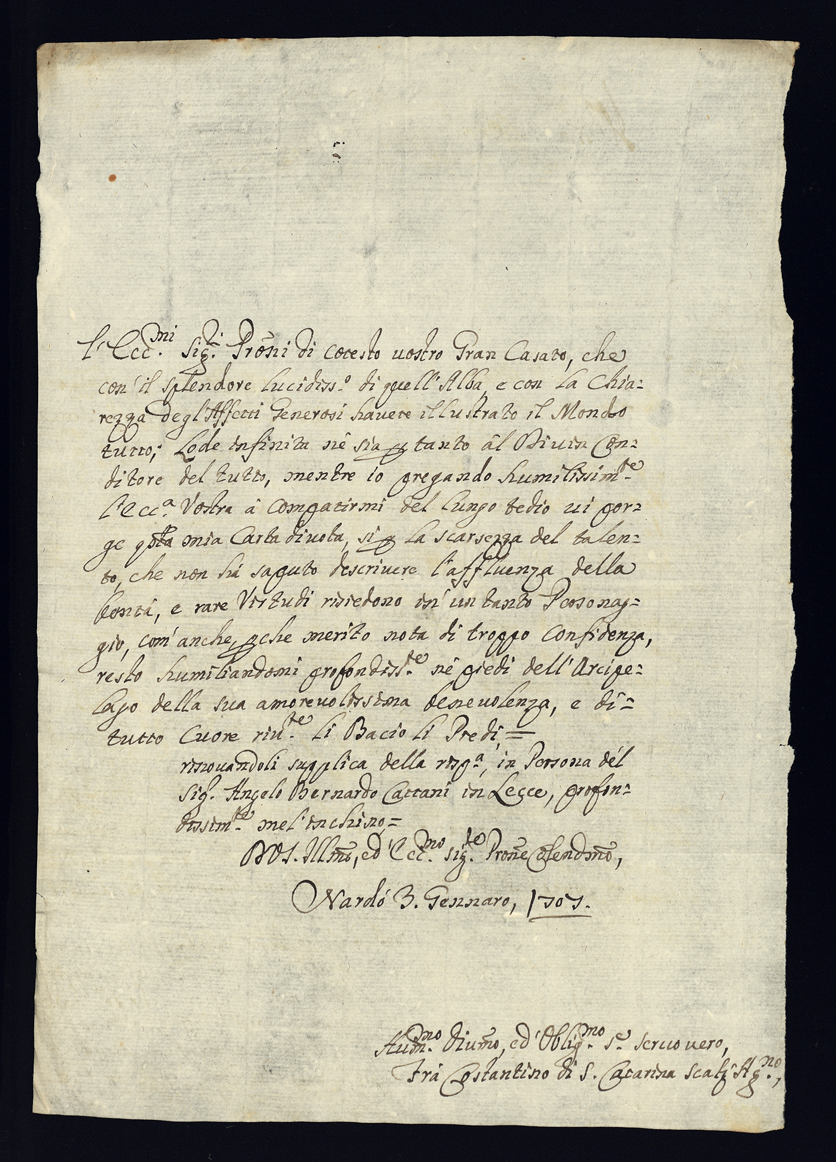 l'Ecc.mi Sig.ri Proñi di cotesto vostro Gran Casato, che
con' il splendore lucidiss.o di quell'Alba, e con la Chia=
rezza degl'Affetti Generosi havete illustrato il Mondo
tutto; Lode infinita nè sia p tanto âl Divin Con=
ditore del tutto, mentre io pregando humilissim.te
l'Ecc.a Vostra â compatirmi del lungo tedio vi por=
ge qsta mia Carta divota, si p la scarsezza del talen=
to, che non hà saputo descrivere l'affluenza della
bontà, e rare Virtudi risiedono in' un tanto Personag=
gio, com' anche, pche merito nota di troppo confidenza,
resto humiliandomi profondiss.te nè piedi dell'Arcipe=
lago della sua amorevolissima benevolenza, e di=
tutto Cuore riv.te li Bacio li Piedi,=
rinovandoli supplica della risp.a, in Persona dél
Sig.r Angelo Bernardo Cattani in Lecce, profon=
dissim.te mel'inchino,=
D V S. Illmõ, ed' Ecc.mo Sig.re Proñe Colendmõ,
Nardò 3. Gennaro, 1707.
Hum.mo Divmõ, ed' Oblig.mo Se servo vero,
Frà Costantino di S. Catarina Scalz' Ag.no,